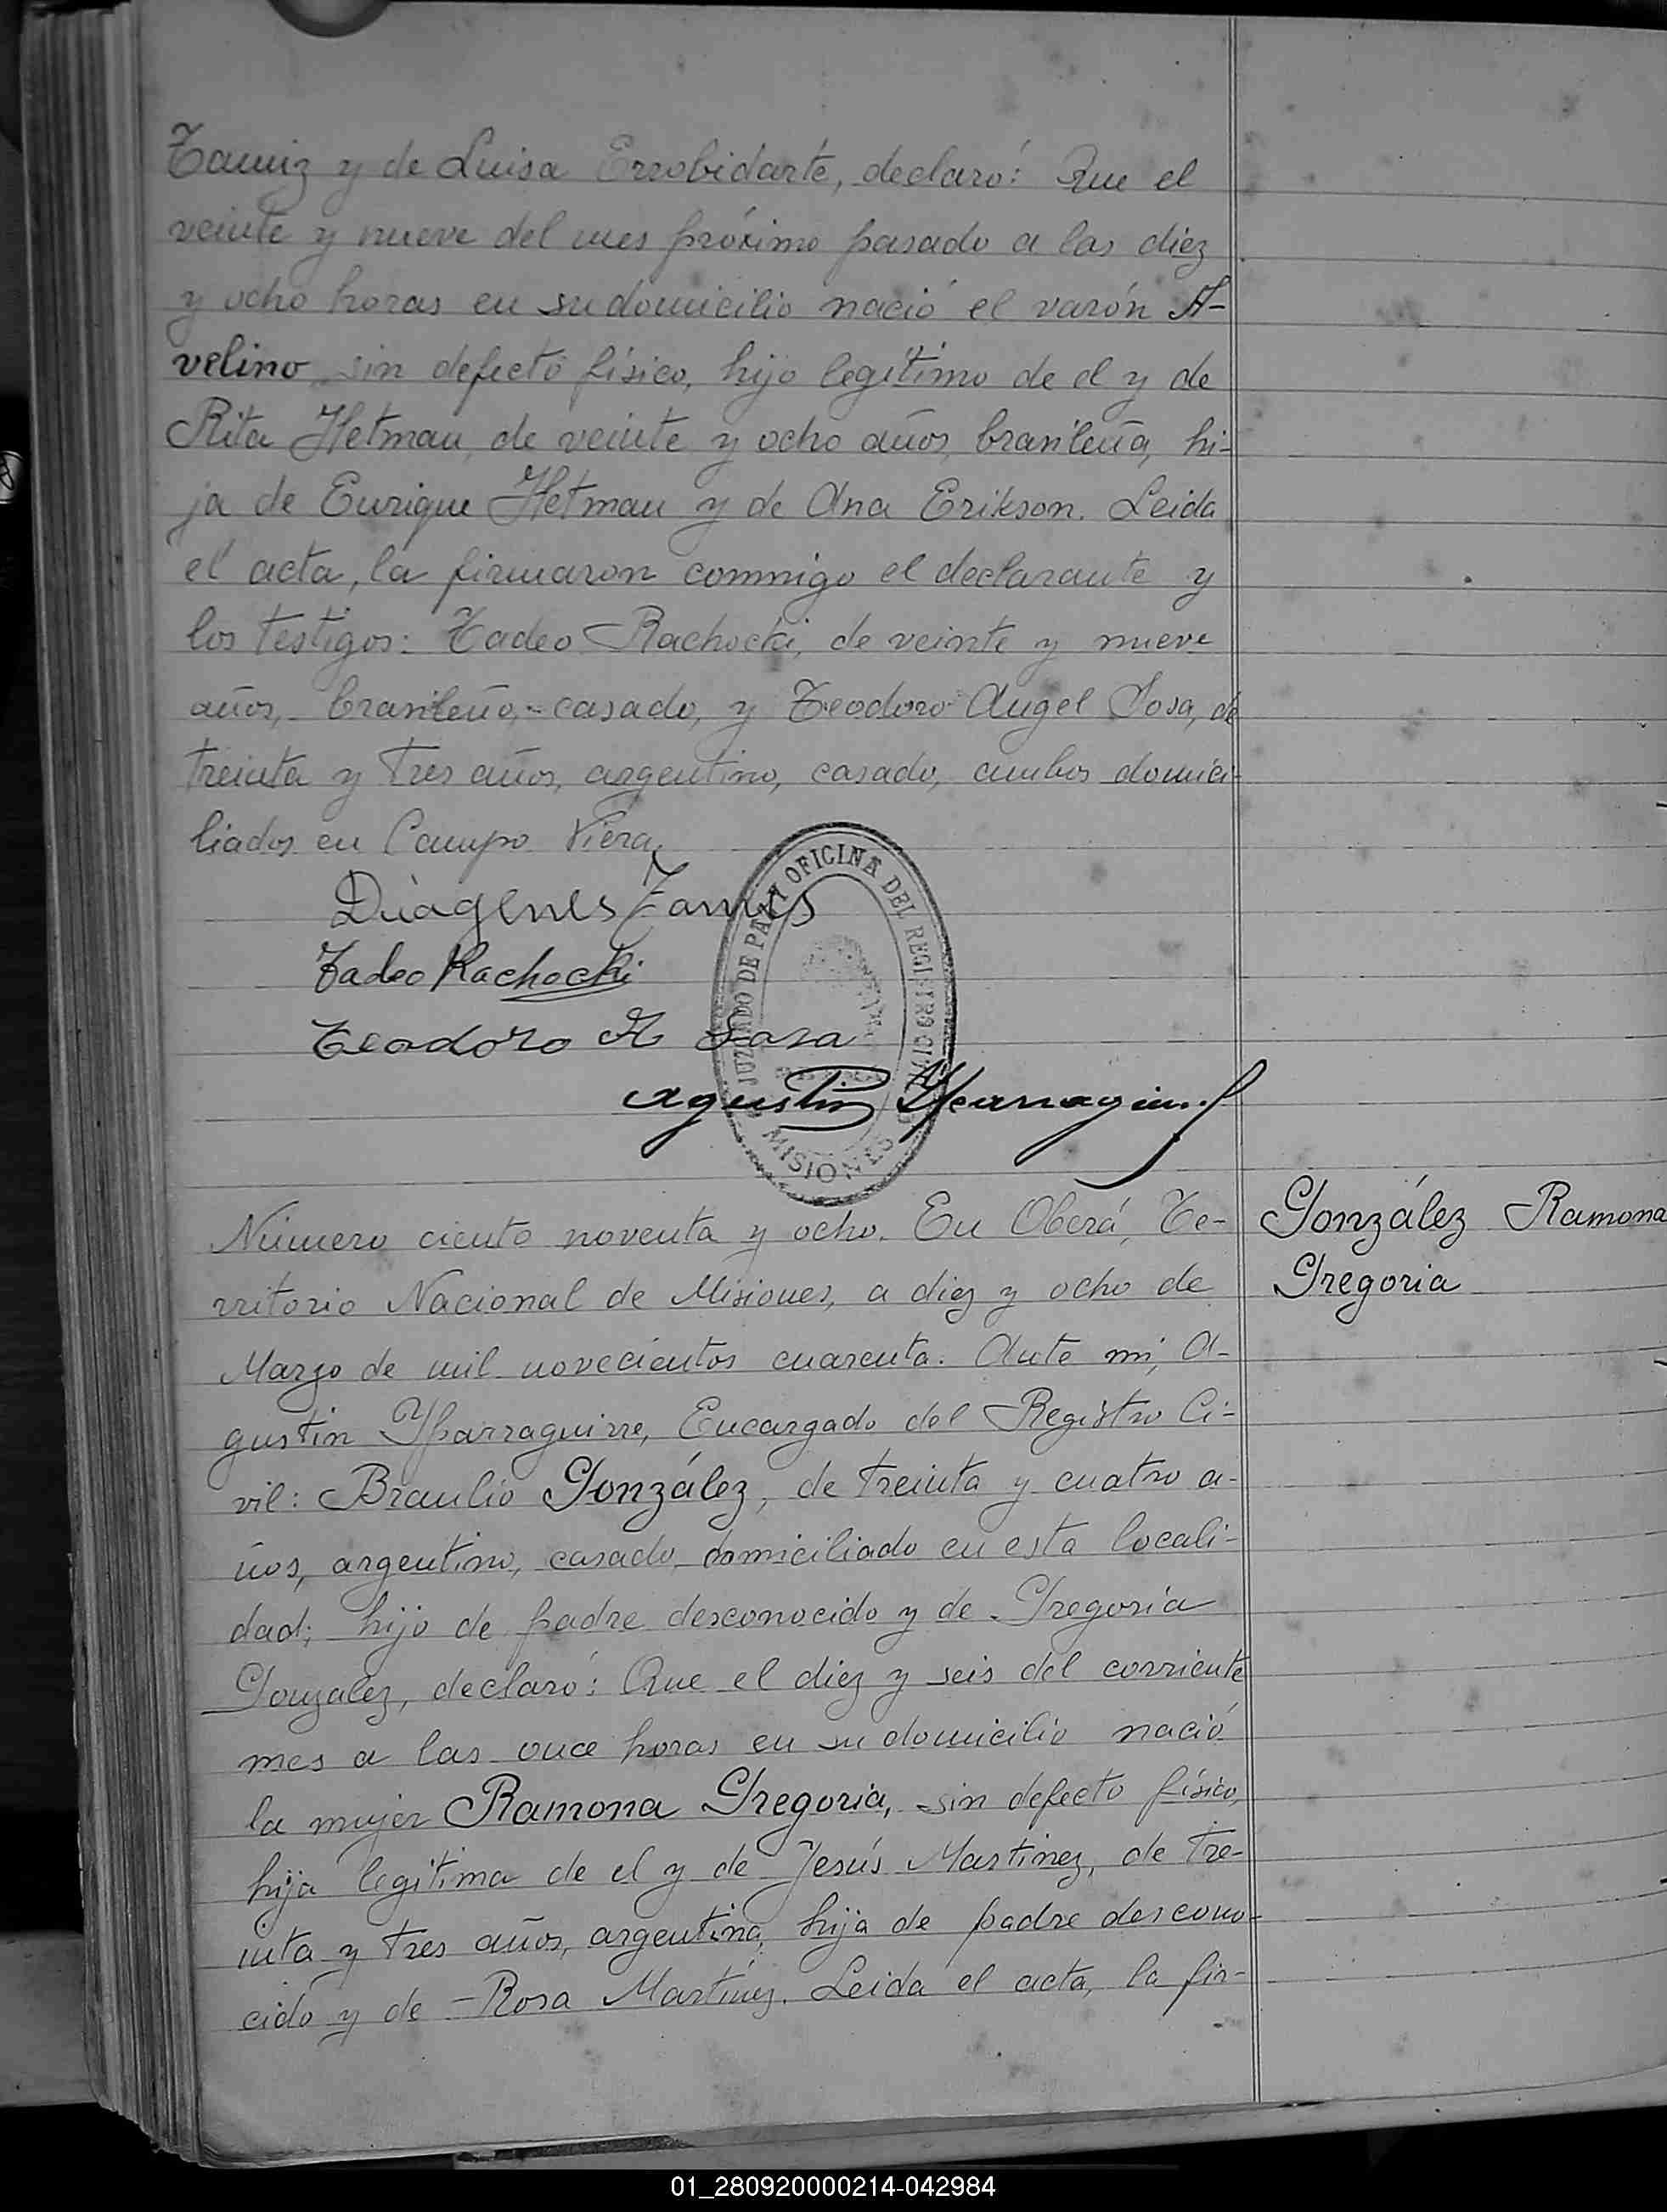 Tamiz y de Luisa Errobidarte, declaró: Que el
veinte y nueve del mes próximo pasado a las diez
y ocho horas en su domicilio nació el varón A-
velino, sin defecto físico, hijo legítimo de el y de
Rita Hetman, de veinte y ocho años, brasileña, hi-
ja de Enrique Hetman y de Ana Erikson. Leida
el acta, la firmaron conmigo el declarante y
los testigos: Tadeo Rachocki, de veinte y nueve
años, brasileño, casado, y Teodoro Angel Sosa, de
treinta y tres años, argentino, casado, ambos domici-
liados en Campo Viera.
Tadeo Rachocki
Teodoro A Sosa
JUZGADO DE PAZ Y OFICINA DEL REGISTRO CIVIL
MISIONES
Número ciento noventa y ocho. En Oberá, Te-
rritorio Nacional de Misiones, a diez y ocho de
Marzo de mil novecientos cuarenta. Ante mi, A-
gustin Yparraguirre, Encargado del Registro Ci-
vil: Braulio González, de treinta y cuatro a-
ños, argentino, casado, domiciliado en esta locali-
dad; hijo de padre desconocido y de Gregoria
Gonzalez, declaró: Que el diez y seis del corriente
mes a las once horas en su domicilio nació
la mujer Ramona Gregoria, sin defecto físico,
hija legitima de el y de Jesús Martinez, de tre-
inta y tres años, argentina, hija de padre descono-
cido y de Rosa Martínez. Leida el acta, la fir-
González Ramona
Gregoria
01_280920000214-042984